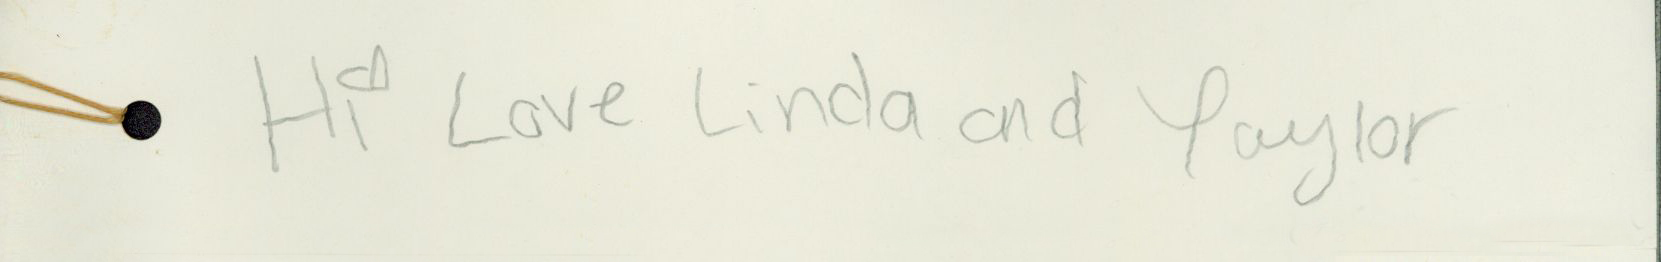 Hi Love Linda and Taylor